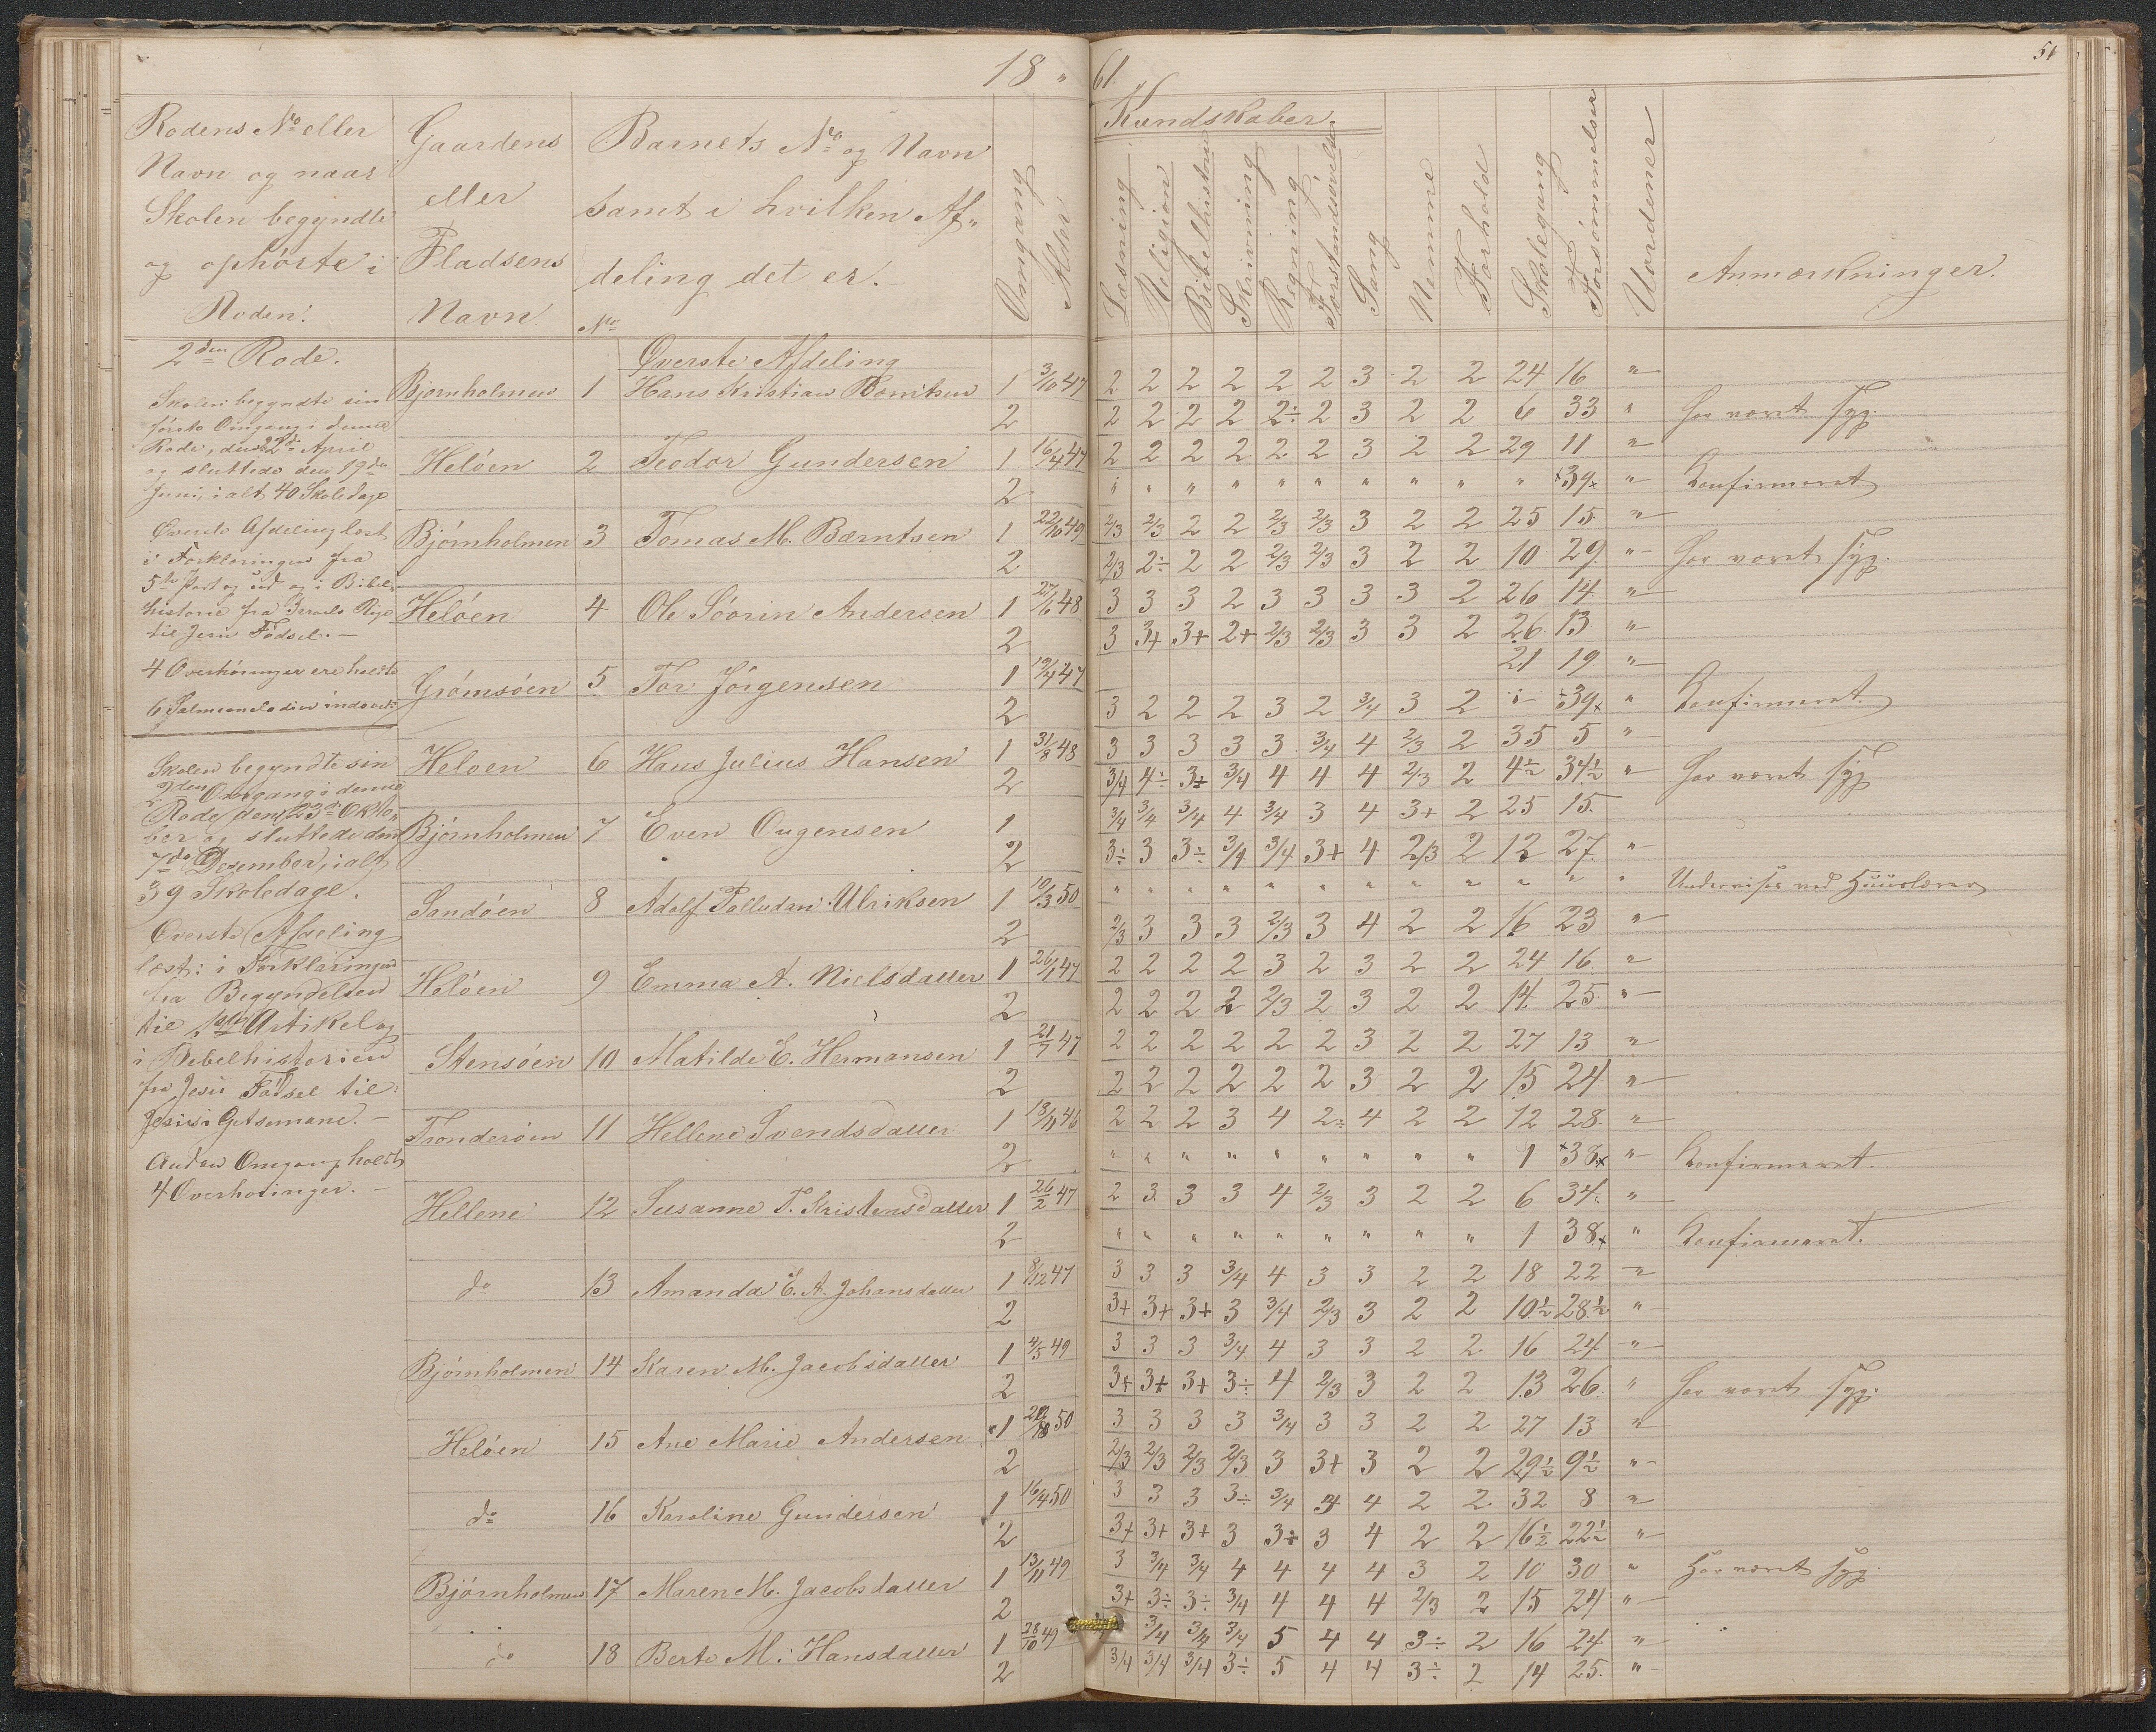 18 " 61.
51
Rodens No eller
Navn og naar
Skolen begyndte
og ophørte i
Roden.
Gaardens
eller
Pladsens
Navn
Barnets No og Navn
samt i hvilken Af-
deling det er.
No
Omgang
Alder
Kundskaber.
Læsning
Religion
Bibelhistorie
Skrivning
Regning
Forstandsøvelse
Sang
Nemme
Forhold
Skolegang
Forsømmelser
Uordener
Anmærkninger.
2den Rode.
Skolen begyndte sin
første Omgang i denne
Rode, den 22de April
og sluttede den 19de
Juni, i alt 40 Skoledage
Øverste Afdeling læst
i Forklaringen fra
5te Part og ud og i Bibel-
historie fra Israels Rige
til Jesu Fødsel. —
4 Overhøringer ere holdte
6 Salmemelodier indøvet.
Skolen begyndte sin
2den Omgang i denne
Rode den 23de Okto-
ber og sluttede den
7de Desember, i alt
39 Skoledage.
Øverste Afdeling
læst: i Forklaringen
fra Begyndelsen
til Artikel og
i Bibelhistorien
fra Jesu Fødsel til
Jesus i Getsemane. —
Anden Omgang holdt
4 Overhøringer. —
Øverste Afdeling
Bjørnholmen 1 Hans Kristian Berntsen 1 3/10 47 2 2 2 2 2 2 3 2 2 24 16 "
2 2 2 2 2 2÷ 2 3 2 2 6 33 " har været syg.
Heløen 2 Teodor Gundersen 1 16/4 47 2 2 2 2 2 2 3 2 2 29 11 "
2 " " " " " " " " " " +39+ " Konfirmeret
Bjørnholmen 3 Tomas M. Bærntsen 1 22/10 49 2/3 2/3 2 2 2/3 2/3 3 2 2 25 15 "
2 2/3 2÷ 2 2 2/3 2/3 3 2 2 10 29 " har været syg.
Heløen 4 Ole Søorin Andersen 1 27/6 48 3 3 3 2 3 3 3 3 2 26 14 "
2 3 3+ 3+ 2+ 2/3 2/3 3 3 2 26 13 "
Grømsøen 5 Tor Jørgensen 1 19/4 47 21 19 "
2 3 2 2 2 3 2 3/4 3 2 " +39+ " Konfirmeret.
Heloen 6 Hans Julius Hansen 1 31/8 48 3 3 3 3 3 3/4 4 2/3 2 35 5 "
2 3/4 4÷ 3÷ 3/4 4 4 4 2/3 2 4½ 34½ " har været syg
Bjørnholmen 7 Even Ougensen 1 3/4 3/4 3/4 4 3/4 3 4 3+ 2 25 15
2 3÷ 3 3÷ 3/4 3/4 3+ 4 2/3 2 12 27 "
Sandøen 8 Adolf Palludan Ulriksen 1 10/3 50 " " " " " " " " " " " " Undervises ved Huuslærer
2 2/3 3 3 3 2/3 3 4 2 2 16 23 "
Heløen 9 Emma A. Nielsdatter 1 26/1 47 2 2 2 2 3 2 3 2 2 24 16 "
2 2 2 2 2 2/3 2 3 2 2 14 25 "
Stensøen 10 Matilde E. Hermansen 1 21/7 47 2 2 2 2 2 2 3 2 2 27 13 "
2 2 2 2 2 2 2 3 2 2 15 24 "
Tronderøen 11 Hellene Svendsdatter 1 18/11 46 2 2 2 3 4 2÷ 4 2 2 12 28 "
2 " " " " " " " " " 1 +38+ " Konfirmeret.
Hellene 12 Susanne T. Kristensdatter 1 26/2 47 2 3 3 3 4 2/3 3 2 2 6 34 "
2 " " " " " " " " " 1 38+ " Konfirmeret.
do 13 Amanda E. A. Johansdatter 1 8/12 47 3 3 3 3/4 4 3 3 2 2 18 22 "
2 3+ 3+ 3+ 3 3/4 2/3 3 2 2 10½ 28½ "
Bjørnholmen 14 Karen M. Jacobsdatter 1 4/5 49 3 3 3 3/4 4 3 3 2 2 16 24 "
2 3+ 3+ 3+ 3÷ 4 2/3 3 2 2 13 26 " har været syg.
Heløen 15 Ane Marie Andersen 1 50 3 3 3 3 3/4 3 3 2 2 27 13 "
2 2/3 2/3 2/3 2/3 3 3+ 3 2 2 29½ 9½ "
do 16 Karoline Gundersen 1 16/4 50 3 3 3 3÷ 3/4 3 4 2 2 32 8 "
2 3+ 3+ 3+ 3 3÷ 3 4 2 2 16½ 22½ "
Bjørnholmen 17 Maren M. Jacobsdatter 1 13/11 49 3 3/4 3/4 4 4 4 4 3 2 10 30 " Har været syg.
2 3+ 3÷ 3÷ 3/4 4 4 4 2/3 2 15 24 "
do 18 Berte M. Hansdatter 1 28/10 49 3/4 3/4 3/4 5 4 4 3÷ 2 16 24 "
2 3/4 3/4 3/4 3÷ 5 4 4 3÷ 2 14 25 "